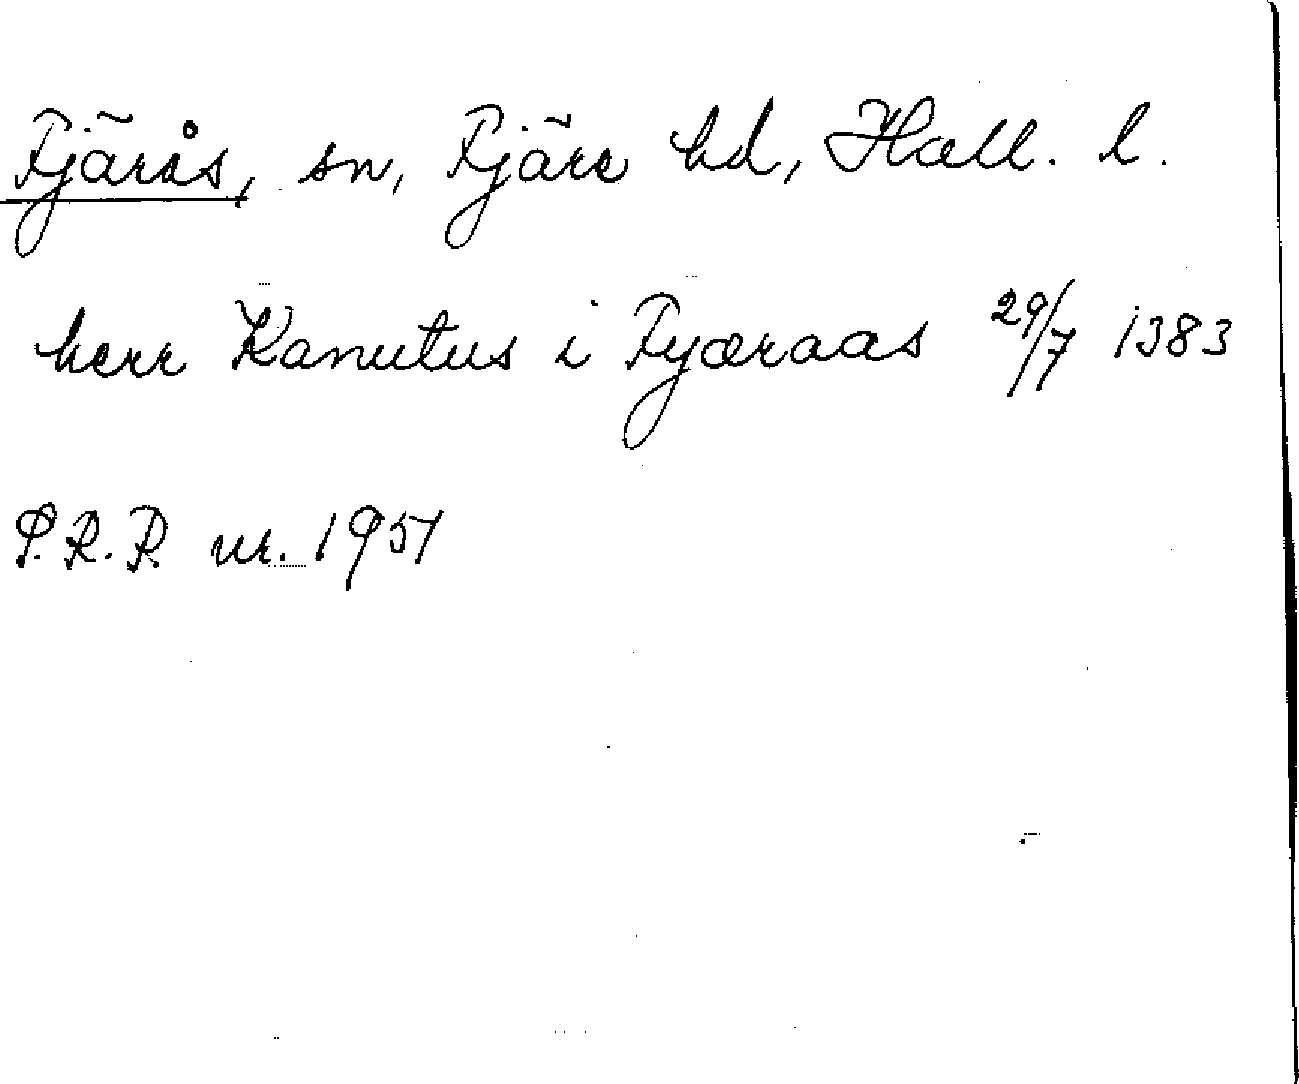 Fjärås, sn, Fjäre hd, Hall. l.
herr Kanutus i Fyæraas 29/7 1383
P.R.P. nr. 1957